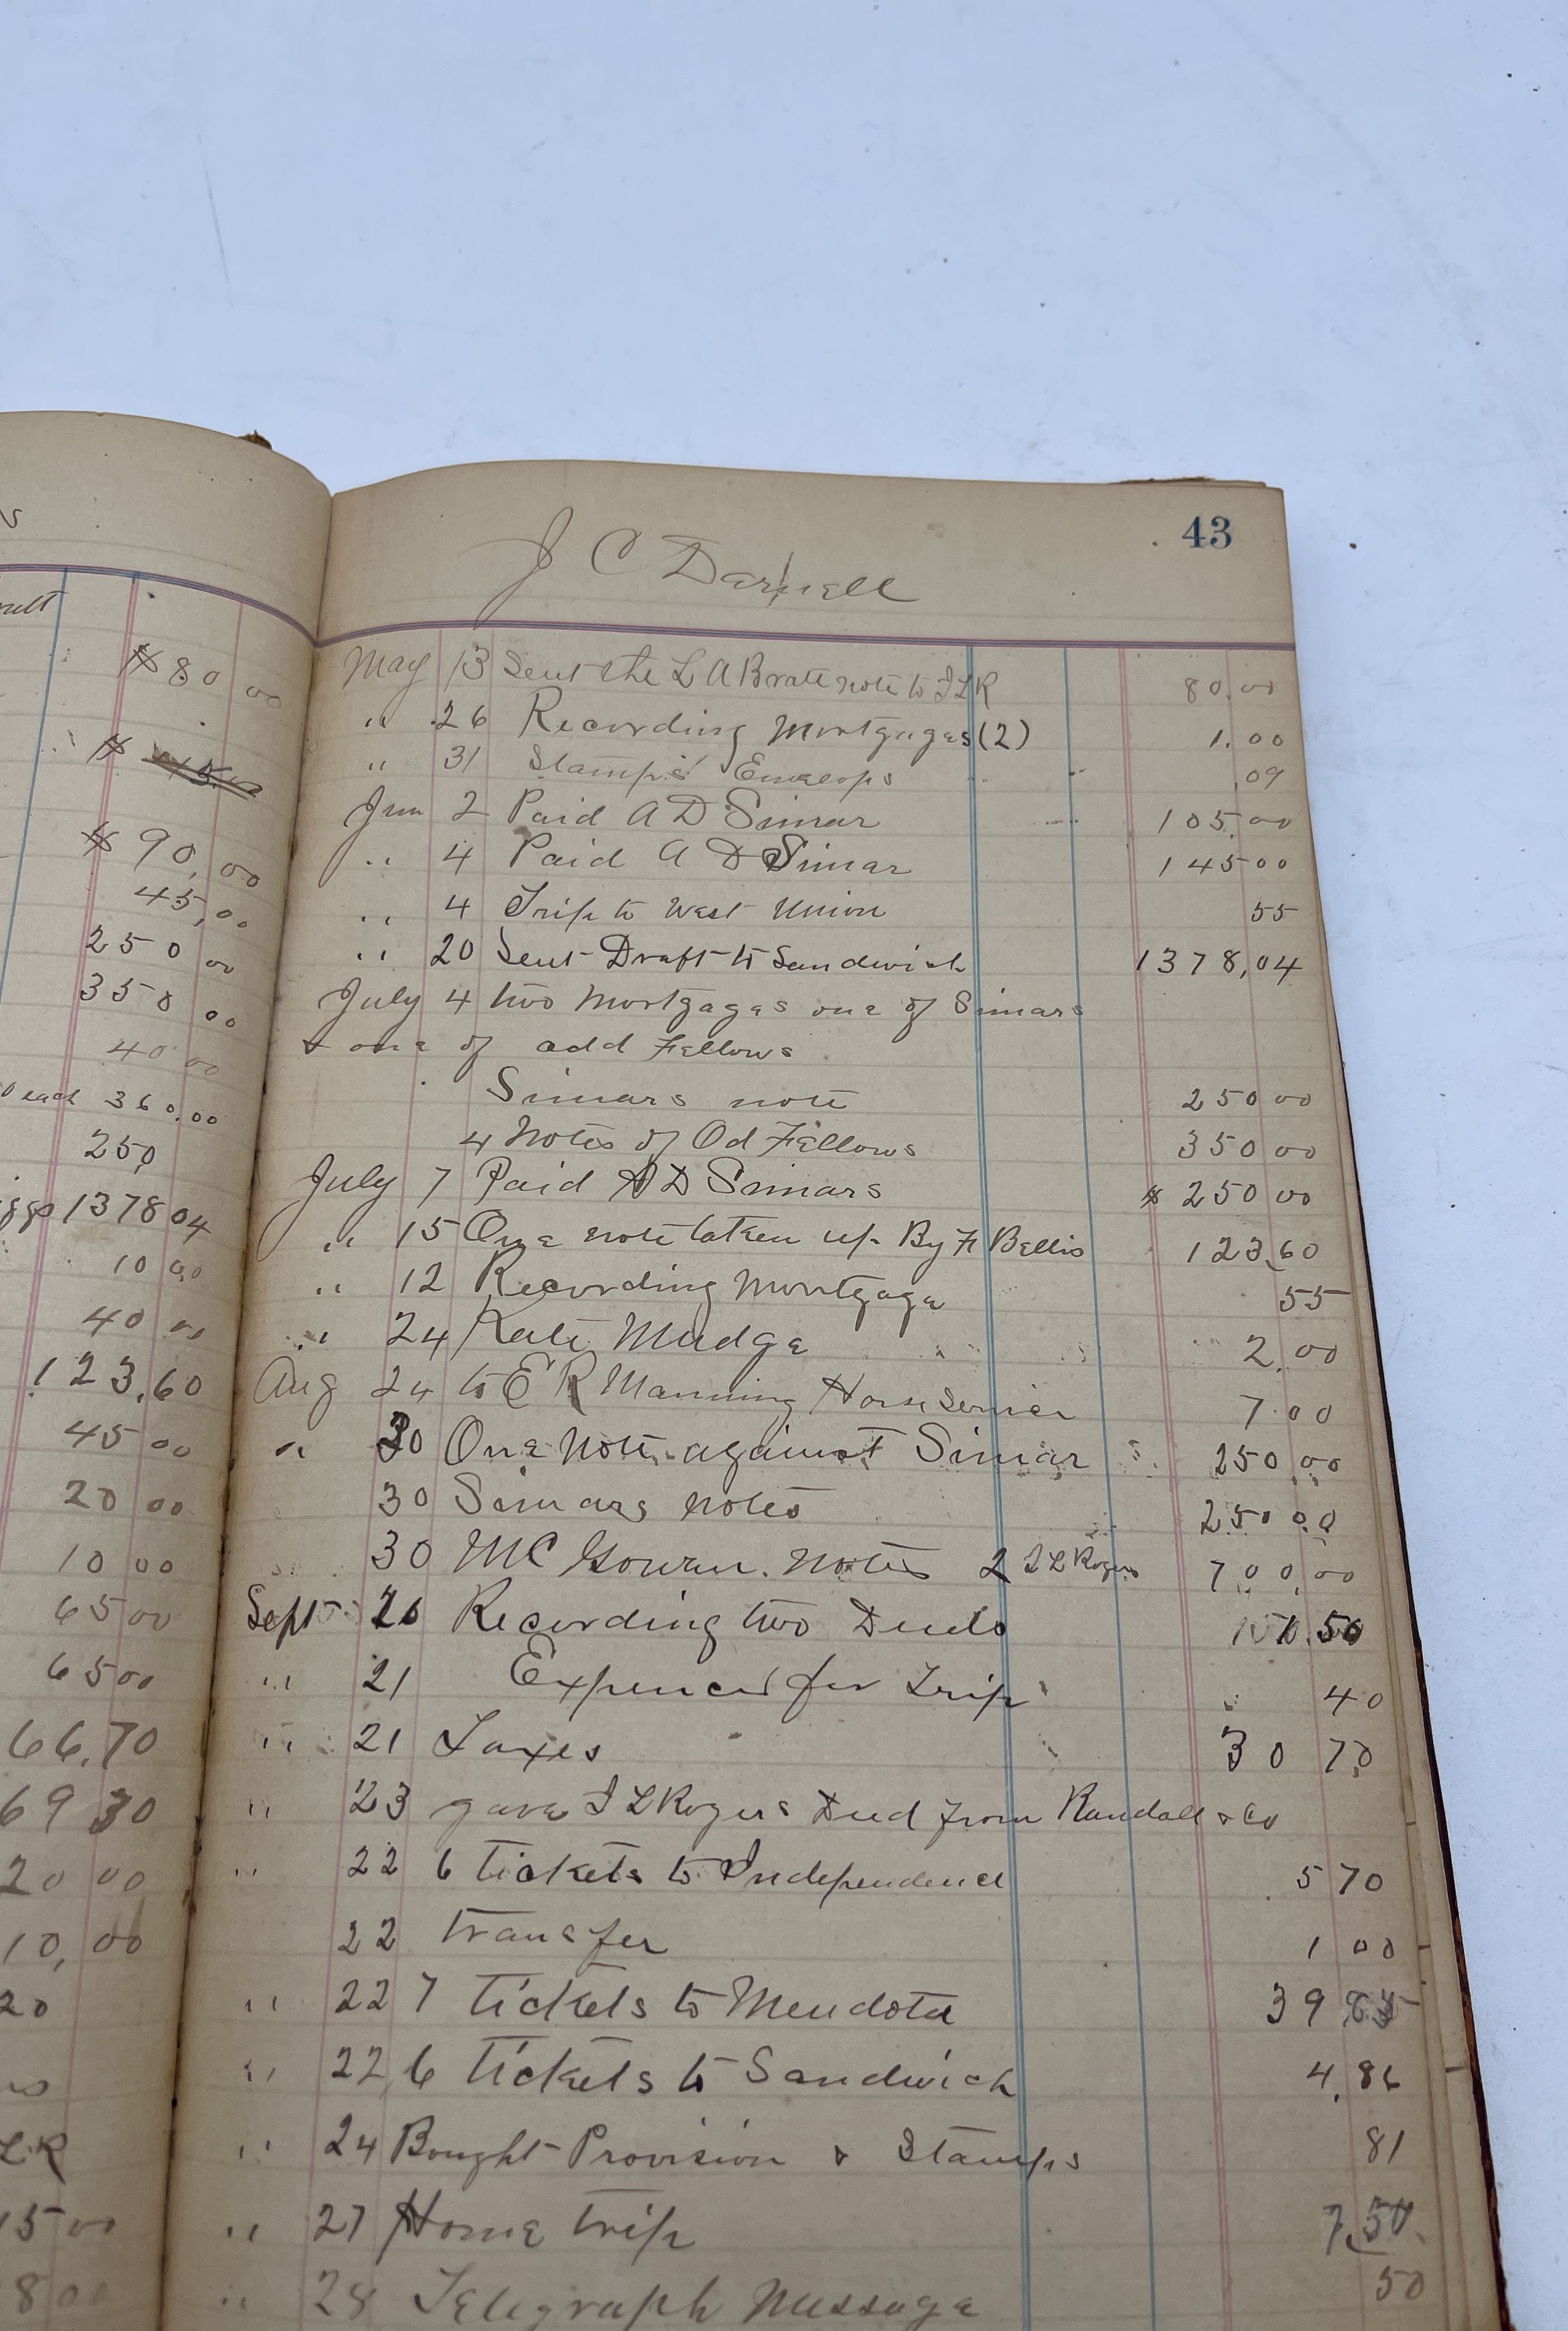 ult
$ 80 00
$
$ 90,00
45,00
250 00
350 00
40 00
0 each 360.00
250
1378 04
10 00
40 00
123,60
45 00
20 00
10 00
65 00
65 00
66.70
69 30
20 00
10,00
20
LR
15 00
8 00
43
J C Darnell
May 13 Sent the L A Brate note to I L R 80.00
" 26 Recording Mortgages (2) 1.00
" 31 Stamps Envelops .09
Jun 2 Paid A D Simar 105.00
" 4 Paid A D Simar 145 00
" 4 Trip to West Union 55
" 20 Sent Draft to Sandwich 1378,04
July 4 two Mortgages one of Simars
& one of odd Fellows
Simars note 250 00
4 Notes of Od Fellows 350 00
July 7 Paid A D Simars $ 250 00
" 15 One note taken up By F Bellis 123,60
" 12 Recording Mortgage 55
" 24 Kate Mudge 2.00
Aug 24 to E R Manning Horse Servier 7.00
" 30 One Note against Simar 250.00
30 Simars notes 250 00
30 MC Gowan. Notes 2 I L Rogers 700.00
Sept 20 Recording two Deeds 1.50
" 21 Expences for Trip 40
" 21 Taxes 30 70
" 23 gave I L Rogers Deed from Randall & Co
" 22 6 tickets to Independence 5 70
22 transfer 1 00
" 22 7 tickets to Mendota 39
" 22 6 tickets to Sandwich 4.86
" 24 Bought Provision & Stamps 81
" 27 Home trip 7.50
" 28 Telegraph Message 50